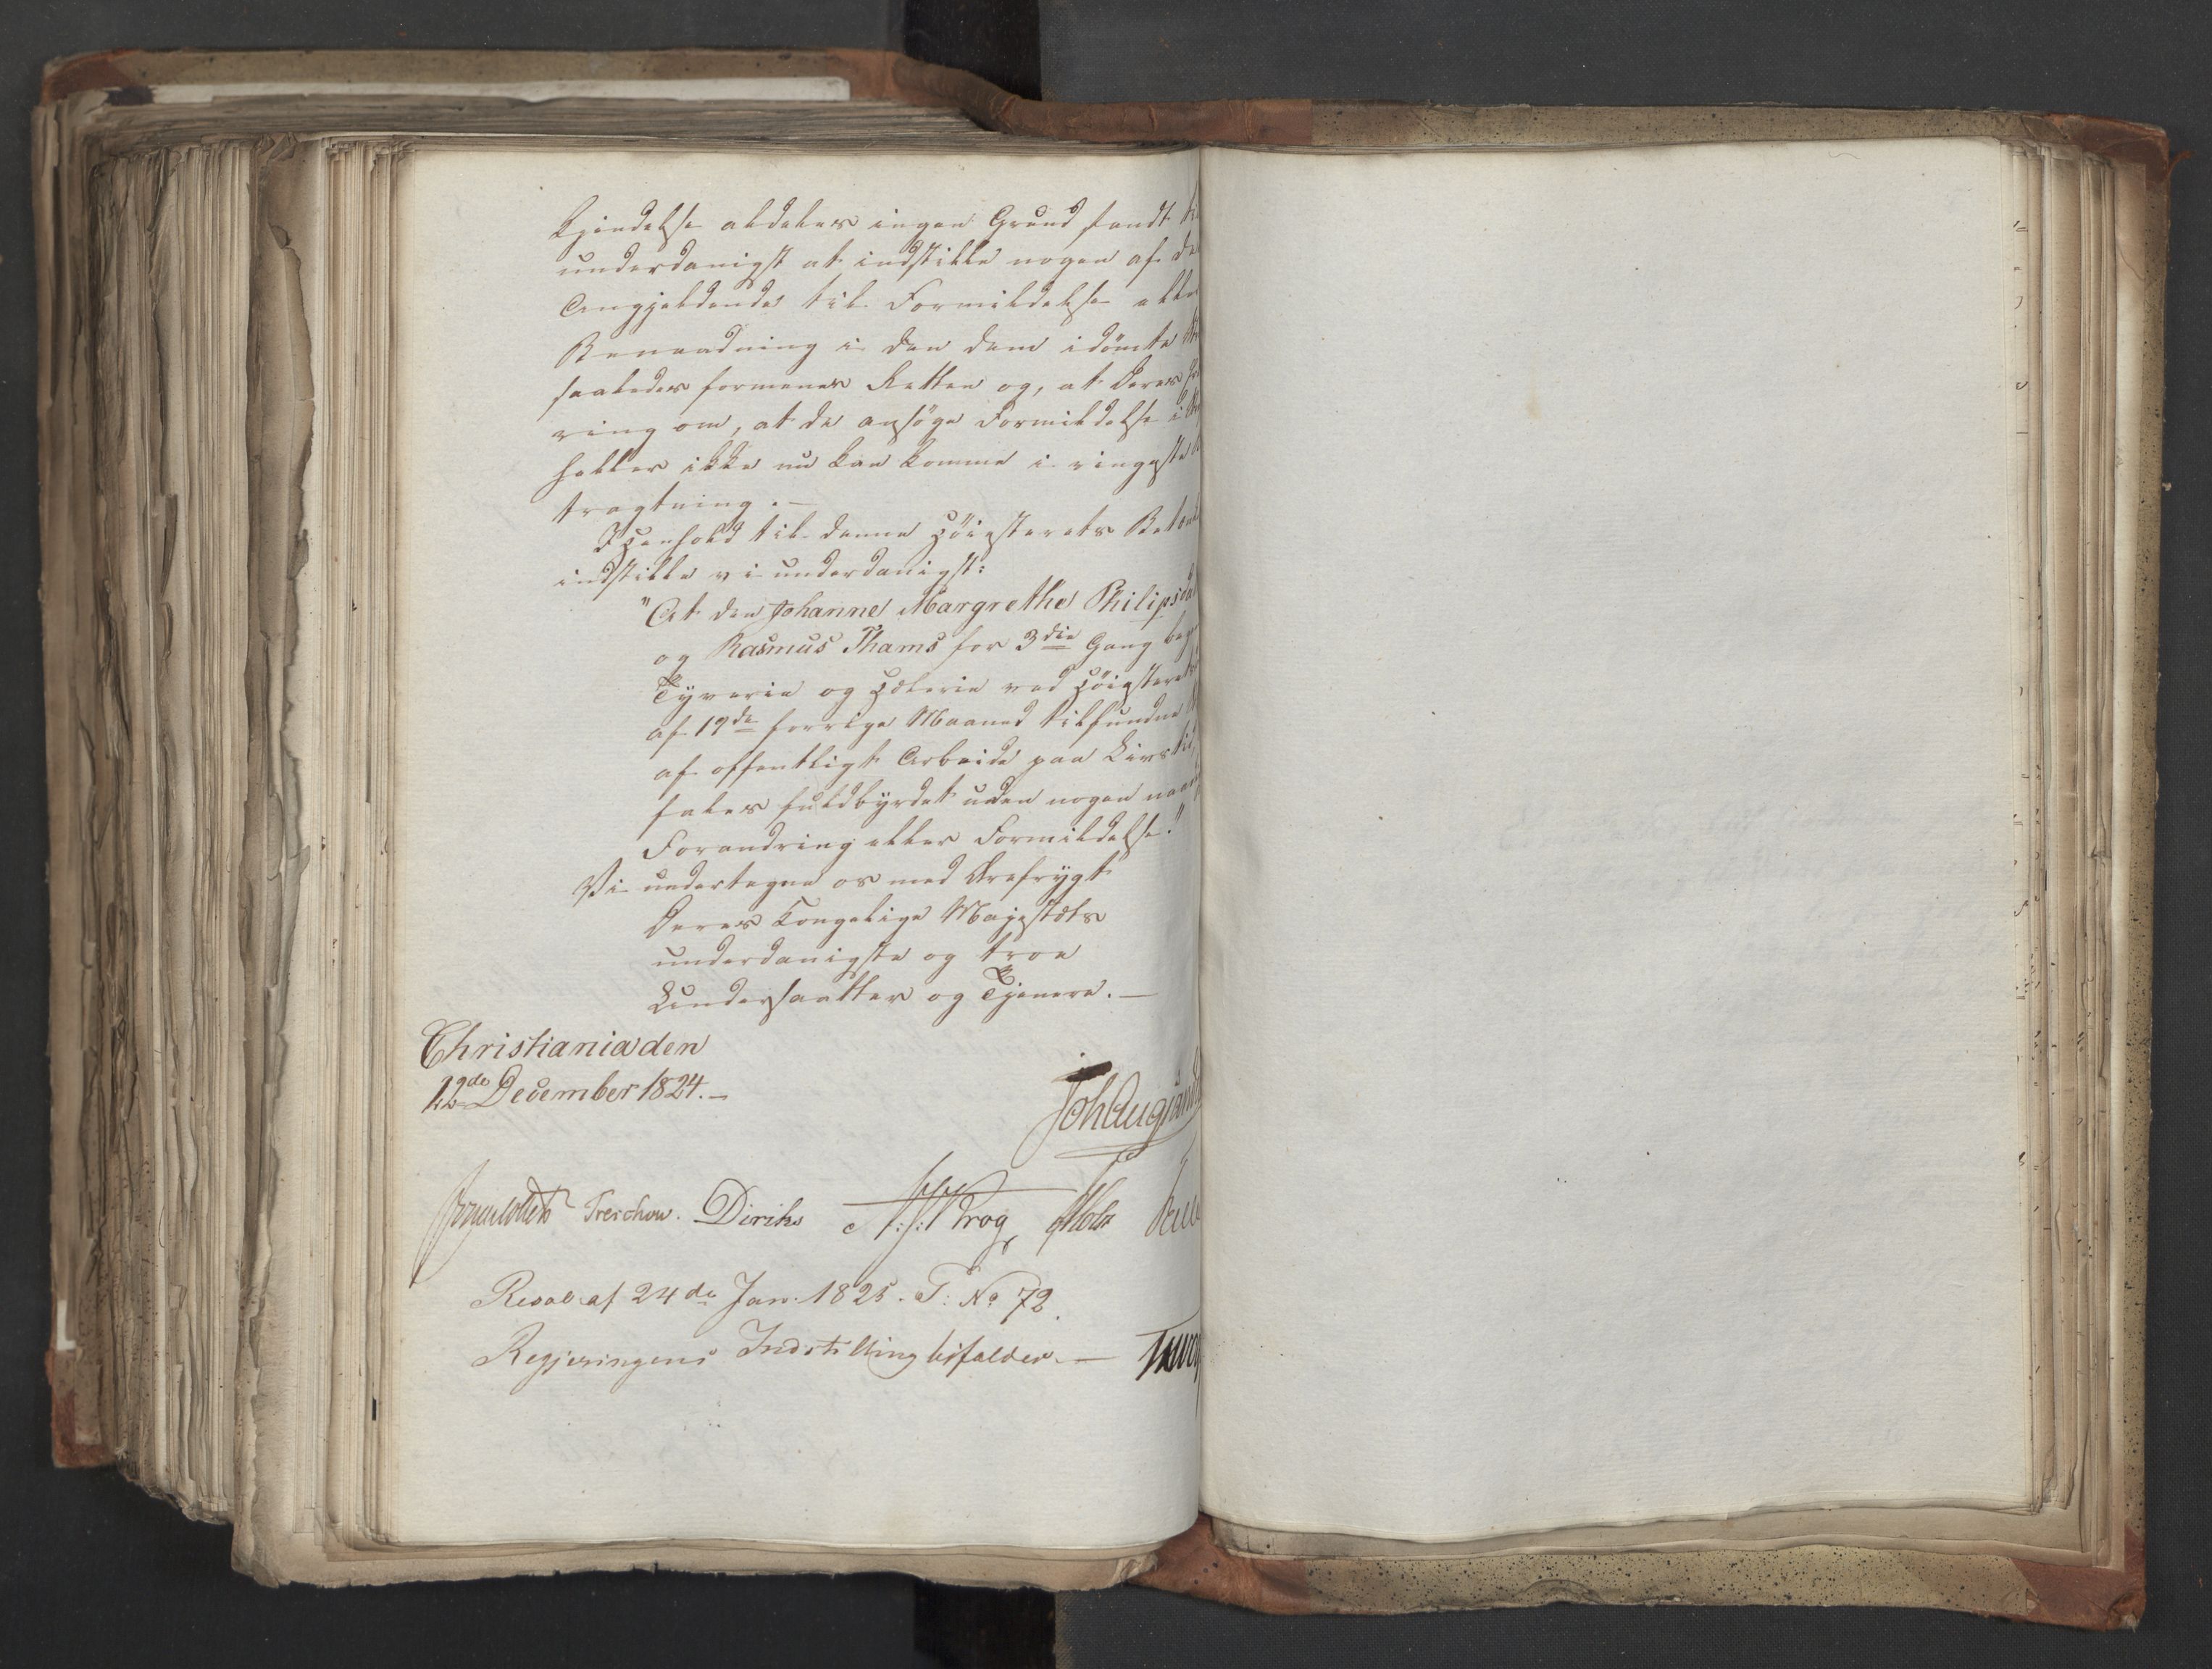 Kjendelse aldeles ingen Grund fandt til
underdanigst at indstille nogen af de
Angjeldende til Formildelse eller
Benaadning i den dem idömte
saaledes formener Retten og, at deres
ring om, at de ansöge Formildelse i
heller ikke nu kan komme i ringeste Be
tragtning. —
I Henhold til denne Höiesterets Betænk
indstille vi underdanigst:
"At den Johanne Margrethe Philipsda
og Rasmus Thams for 3die Gang beg
Tyverie og Hælerie ved Höiesterets
af 19de forrige Maaned tilfundne
af offentligt Arbeide paa Livstid,
fales fuldbyrdet uden nogen
Forandring eller Formildelse."
Vi undertegne os med Ærefrygt
Deres Kongelige Majestæts
underdanigste og troe
Undersaatter og Tjenere. —
Christiania den
12de December 1824. —
Joh Aug Sand
Treschow. Diriks Krog Holst
Resol. af 24de Jan. 1825. T: No 72.
Regjeringens Indstilling bifaldes. —